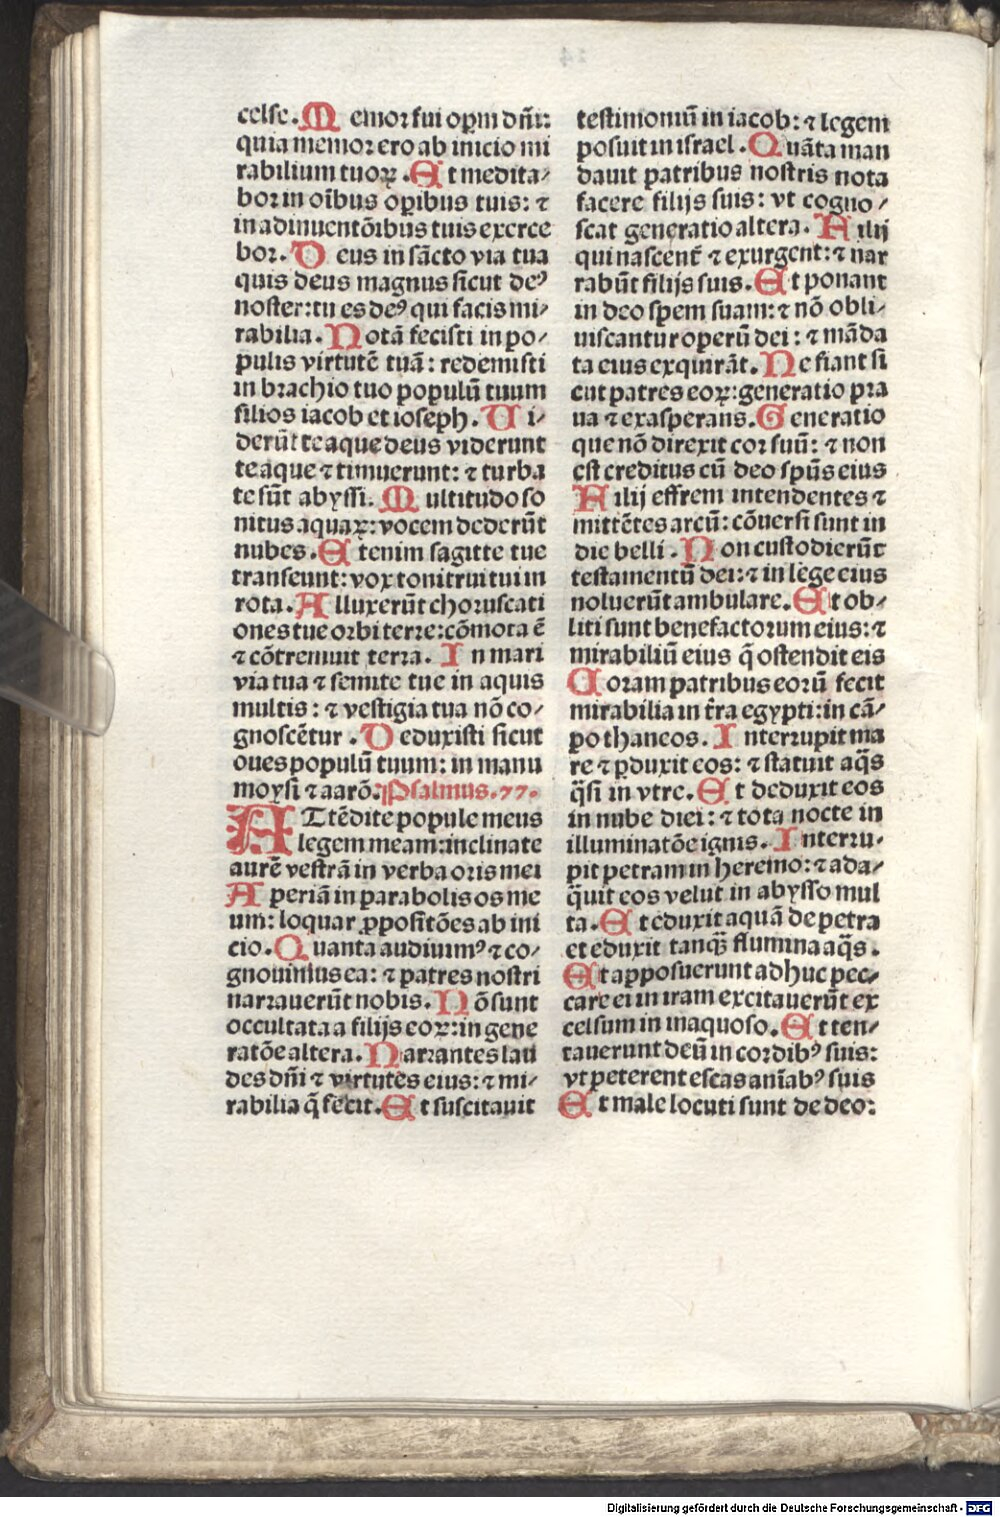 celse. Memor fui oꝑm dñi:
quia memor ero ab inicio mi
rabilium tuoꝝ. Et medita⸗
bor in oībus oꝑibus tuis: ⁊
in adinuentōibus tuis exerce
bor. Deus in sācto via tua
quis deus magnus sicut deꝰ
noster: tu es deꝰ qui facis mi⸗
rabilia. Notā fecisti in po⸗
pulis virtutē tuā: redemisti
in brachio tuo populū tuum
filios iacob et ioseph. Ui⸗
derūt te aque deus viderunt
te aque ⁊ timuerunt: ⁊ turba
te sūt abyssi. Multitudo so
nitus aquaꝝ: vocem dederūt
nubes. Etenim sagitte tue
transeunt: vox tonitrui tui in
rota. Alluxerūt choruscati
ones tue orbi terre: cōmota ē
⁊ cōtremuit terra. In mari
via tua ⁊ semite tue in aquis
multis: ⁊ vestigia tua nō co⸗
gnoscētur. Deduxisti sicut
oues populū tuum: in manu
moysi ⁊ aarō. Psalmus. 77.
ATtēdite popule meus
legem meam: inclinate
aurē vestrā in verba oris mei
Aperiā in parabolis os me
um: loquar ꝓpositōes ab ini
cio. Quanta audiuimꝰ ⁊ co⸗
gnouimus ea: ⁊ patres nostri
narrauerūt nobis. Nō sunt
occultata a filijs eoꝝ: in gene
ratōe altera. Narrantes lau
des dñi ⁊ virtutes eius: ⁊ mi⸗
rabilia q̄ fecit. Et suscitauit
testimoniū in iacob: ⁊ legem
posuit in israel. Quāta man
dauit patribus nostris nota
facere filijs suis: vt cogno⸗
scat generatio altera. Filij
qui nascent̄ ⁊ exurgent: ⁊ nar
rabūt filijs suis. Et ponant
in deo spem suam: ⁊ nō obli⸗
uiscantur operū dei: ⁊ māda
ta eius exquirāt. Ne fiant si
cut patres eoꝝ: generatio pra
ua ⁊ exasperans. Generatio
que nō direxit cor suū: ⁊ non
est creditus cū deo spūs eius
Filij effrem intendentes ⁊
mittētes arcū: cōuersi sunt in
die belli. Non custodierūt
testamentū dei: ⁊ in lege eius
noluerūt ambulare. Et ob⸗
liti sunt benefactorum eius: ⁊
mirabiliū eius q̄ ostendit eis
Coram patribus eorū fecit
mirabilia in t̄ra egypti: in cā⸗
po thaneos. Interrupit ma
re ⁊ ꝑduxit eos: ⁊ statuit aq̄s
q̄si in vtre. Et deduxit eos
in nube diei: ⁊ tota nocte in
illuminatōe ignis. Interru⸗
pit petram in heremo: ⁊ ada⸗
q̄uit eos velut in abysso mul
ta. Et eduxit aquā de petra
et eduxit tanqꝫ flumina aq̄s.
Et apposuerunt adhuc pec⸗
care ei in iram excitauerūt ex
celsum in inaquoso. Et ten⸗
tauerunt deū in cordibꝰ suis:
vt peterent escas aniabꝰ suis
Et male locuti sunt de deo:
Digitalisierung gefördert durch die Deutsche Forschungsgemeinschaft - DFG